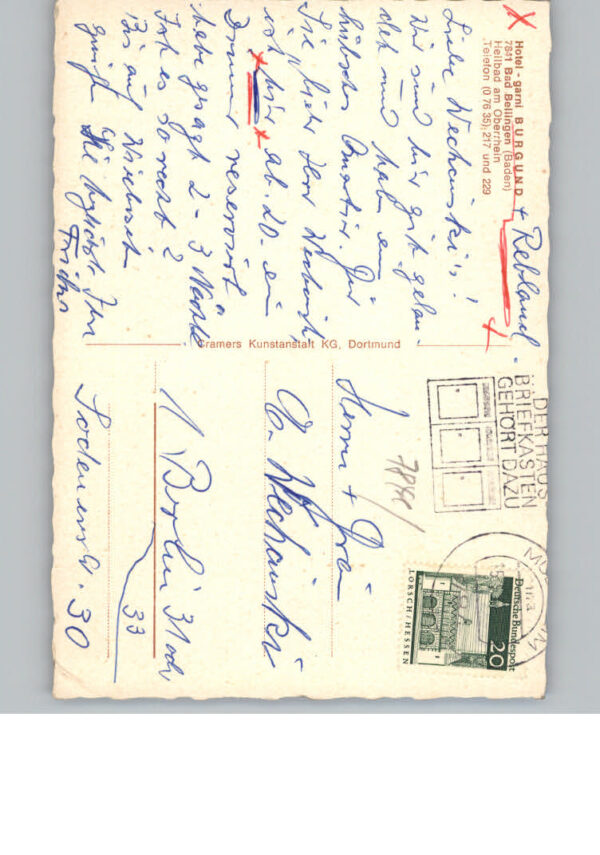 Hotel - garni BURGUND + Rebland.
7841 Bad Bellingen (Baden)
Heilbad am Oberrhein
Telefon (0 76 35) 217 und 229
Liebe Wechinski's!
Wir sind hier gut gelan-
det und haben ein
hübsches Quartier. Für
Sie, lieber Herr
ist hier ab 20. ein
Zimmer reserviert
habe gesagt 2-3 Nächte
Ist es so recht?
Bis auf Wiedersehn
grüßt Sie herzlichst Ihre
Cramers Kunstanstalt KG, Dortmund
DER HAUS
BRIEFKASTEN
GEHÖRT DAZU
Deutsche Bundespost
20
LORSCH/HESSEN
Herrn + Frau
Wechinski
1 Berlin 31
33
30